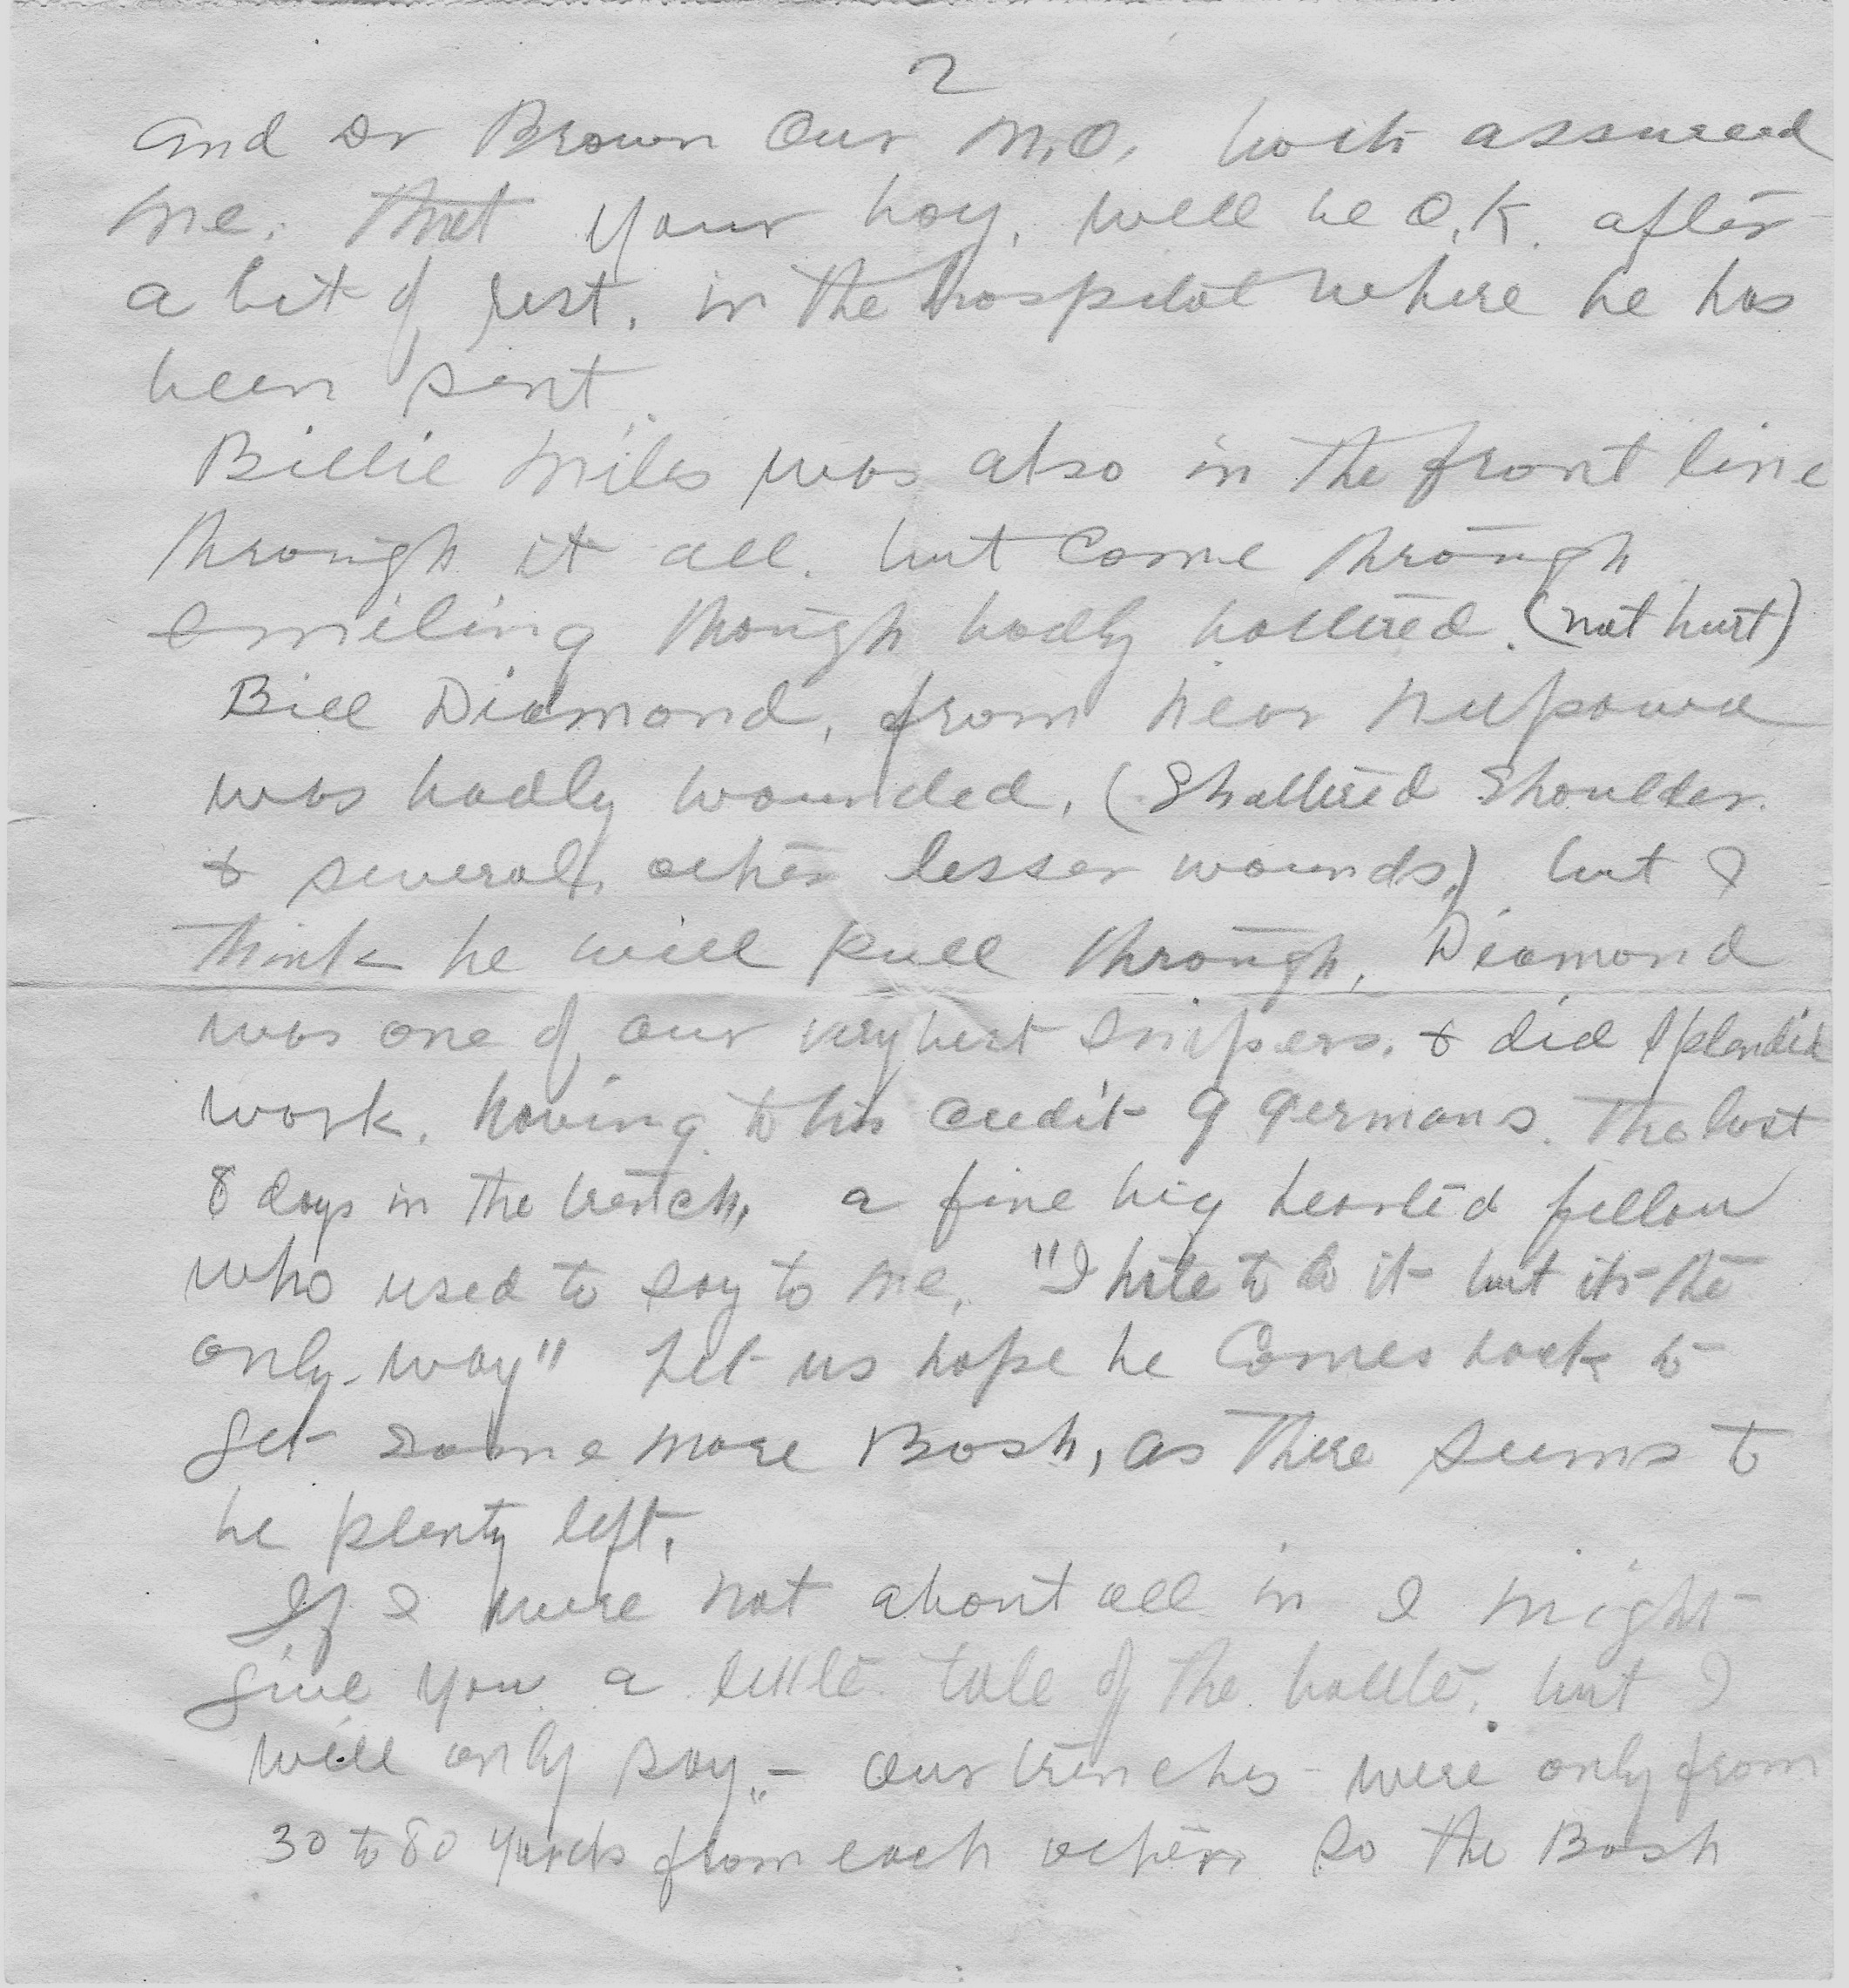 2
and Dr Brown Our M.O. both assured
me. that your boy, will be O.K. after
a bit of rest. in the hospital where he has
been sent.
Billie Miles was also in the front line
through it all. but come through
smiling though badly battered. (not hurt)
Bill Diamond, from near Neepawa
was badly wounded, (Shattered Shoulder.
& several, other lesser wounds,) but I
think he will pull through, Diamond
was one of our very best snipers. & did splendid
work. having to his credit 9 germans. The last
8 days in the trench, a fine big hearted fellow
who used to say to me, "I hate to do it but its the
only way" Let us hope he Comes back to
get some more Bosh, as there seems to
be plenty left.
If I were not about all in I might
give you a little tale of the battle, but I
will only say,- our trenches were only from
30 to 80 yards from each other so the Bosh